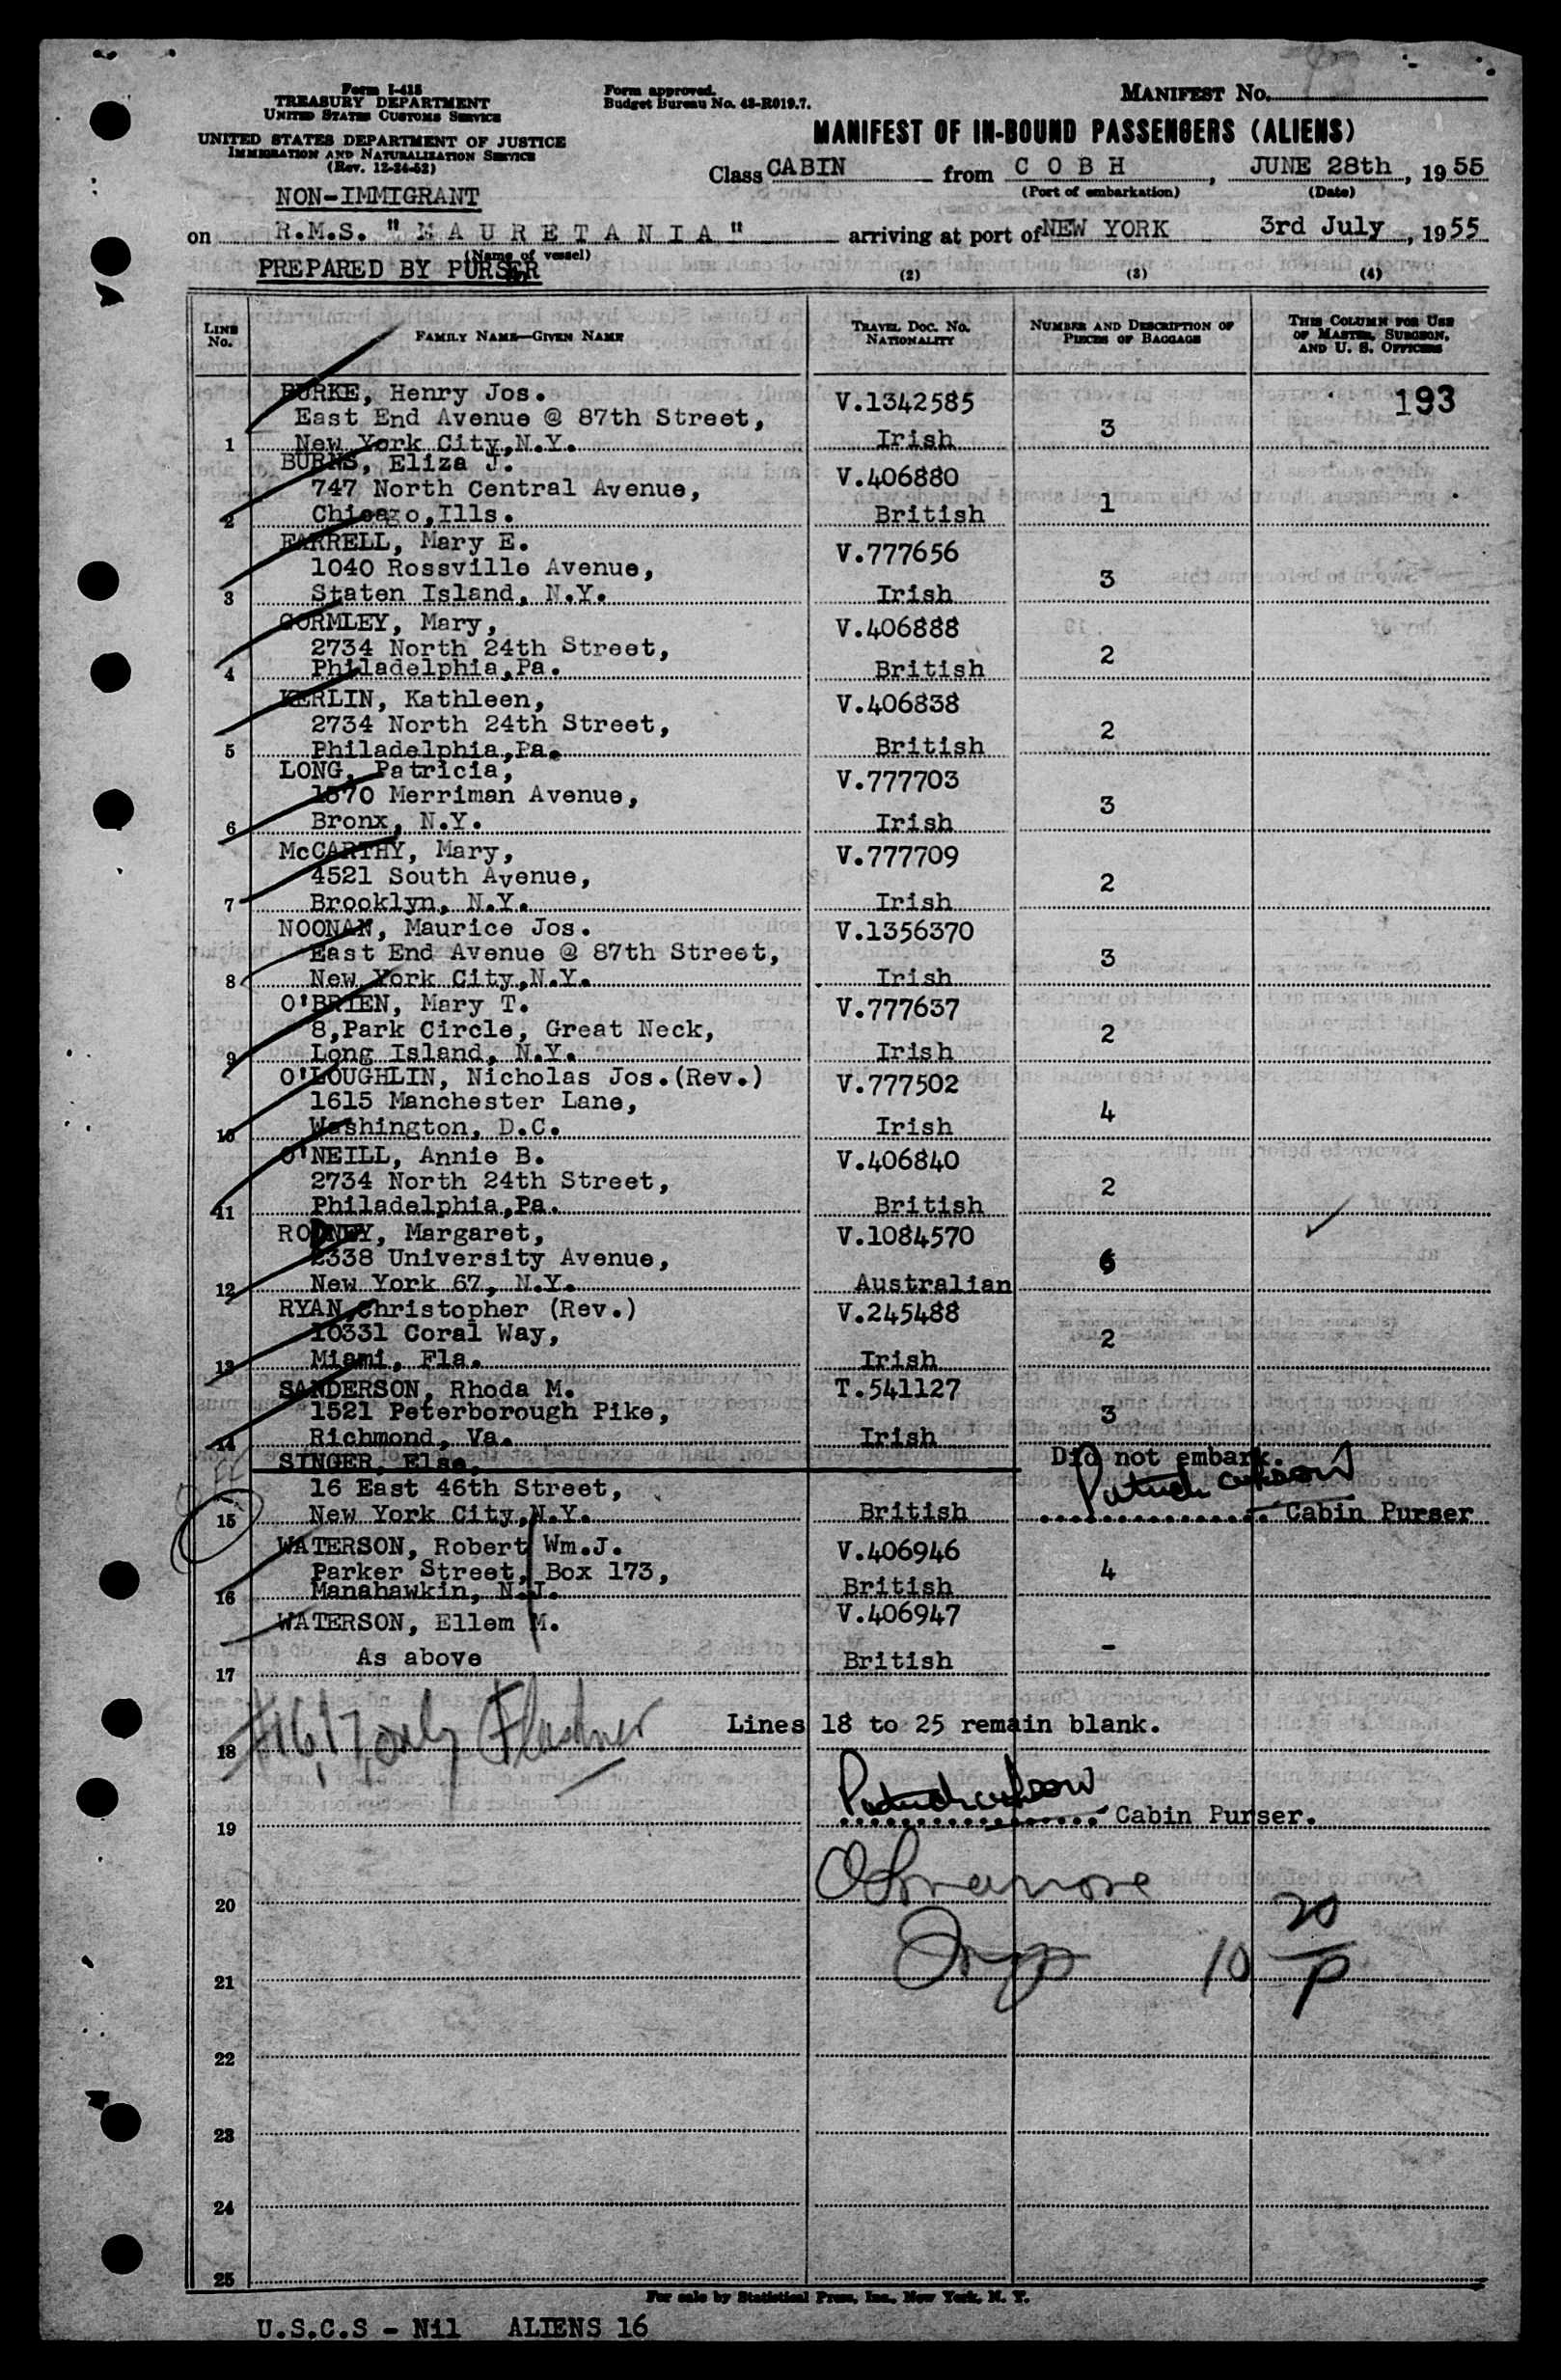 Form I-418
TREASURY DEPARTMENT
UNITED STATES CUSTOMS SERVICE
UNITED STATES DEPARTMENT OF JUSTICE
IMMIGRATION AND NATURALIZATION SERVICE
(Rev. 12-24-52)
Form approved.
Budget Bureau No. 43-R019.7.
MANIFEST No.
MANIFEST OF IN-BOUND PASSENGERS (ALIENS)
Class CABIN from C O B H, JUNE 28th, 1955
(Port of embarkation) (Date)
NON-IMMIGRANT
on R.M.S. "M A U R E T A N I A" arriving at port of NEW YORK 3rd July, 1955
(Name of vessel)
PREPARED BY PURSER
(2) (3) (4)
LINE No. FAMILY NAME—GIVEN NAME TRAVEL DOC. NO. NATIONALITY NUMBER AND DESCRIPTION OF PIECES OF BAGGAGE THIS COLUMN FOR USE OF MASTER, SURGEON, AND U. S. OFFICERS
193
BURKE, Henry Jos. V.1342585
East End Avenue @ 87th Street, 3
1 New York City,N.Y. Irish
BURNS, Eliza J. V.406880
747 North Central Avenue, 1
2 Chicago,Ills. British
FARRELL, Mary E. V.777656
1040 Rossville Avenue, 3
3 Staten Island, N.Y. Irish
GORMLEY, Mary, V.406888
2734 North 24th Street, 2
4 Philadelphia,Pa. British
KERLIN, Kathleen, V.406838
2734 North 24th Street, 2
5 Philadelphia,Pa. British
LONG, Patricia, V.777703
1570 Merriman Avenue, 3
6 Bronx, N.Y. Irish
McCARTHY, Mary, V.777709
4521 South Avenue, 2
7 Brooklyn, N.Y. Irish
NOONAN, Maurice Jos. V.1356370
East End Avenue @ 87th Street, 3
8 New York City,N.Y. Irish
O'BRIEN, Mary T. V.777637
8,Park Circle, Great Neck, 2
9 Long Island, N.Y. Irish
O'LOUGHLIN, Nicholas Jos.(Rev.) V.777502
1615 Manchester Lane, 4
10 Washington, D.C. Irish
O'NEILL, Annie B. V.406840
2734 North 24th Street, 2
11 Philadelphia,Pa. British
RODNEY, Margaret, V.1084570
2338 University Avenue, 6
12 New York 67, N.Y. Australian
RYAN,Christopher (Rev.) V.245488
10331 Coral Way, 2
13 Miami, Fla. Irish
SANDERSON, Rhoda M. T.541127
1521 Peterborough Pike, 3
14 Richmond, Va. Irish
SINGER, Else, Did not embark.
16 East 46th Street,
15 New York City,N.Y. British Cabin Purser
WATERSON, Robert Wm.J. V.406946
Parker Street, Box 173, 4
16 Manahawkin, N.J. British
WATERSON, Ellem M. V.406947
-
17 As above British
#16,17 only
Lines 18 to 25 remain blank.
18
19 Cabin Purser.
20
20
10 P
21
22
23
24
25
For sale by Statistical Press, Inc., New York, N. Y.
U.S.C.S - Nil ALIENS 16